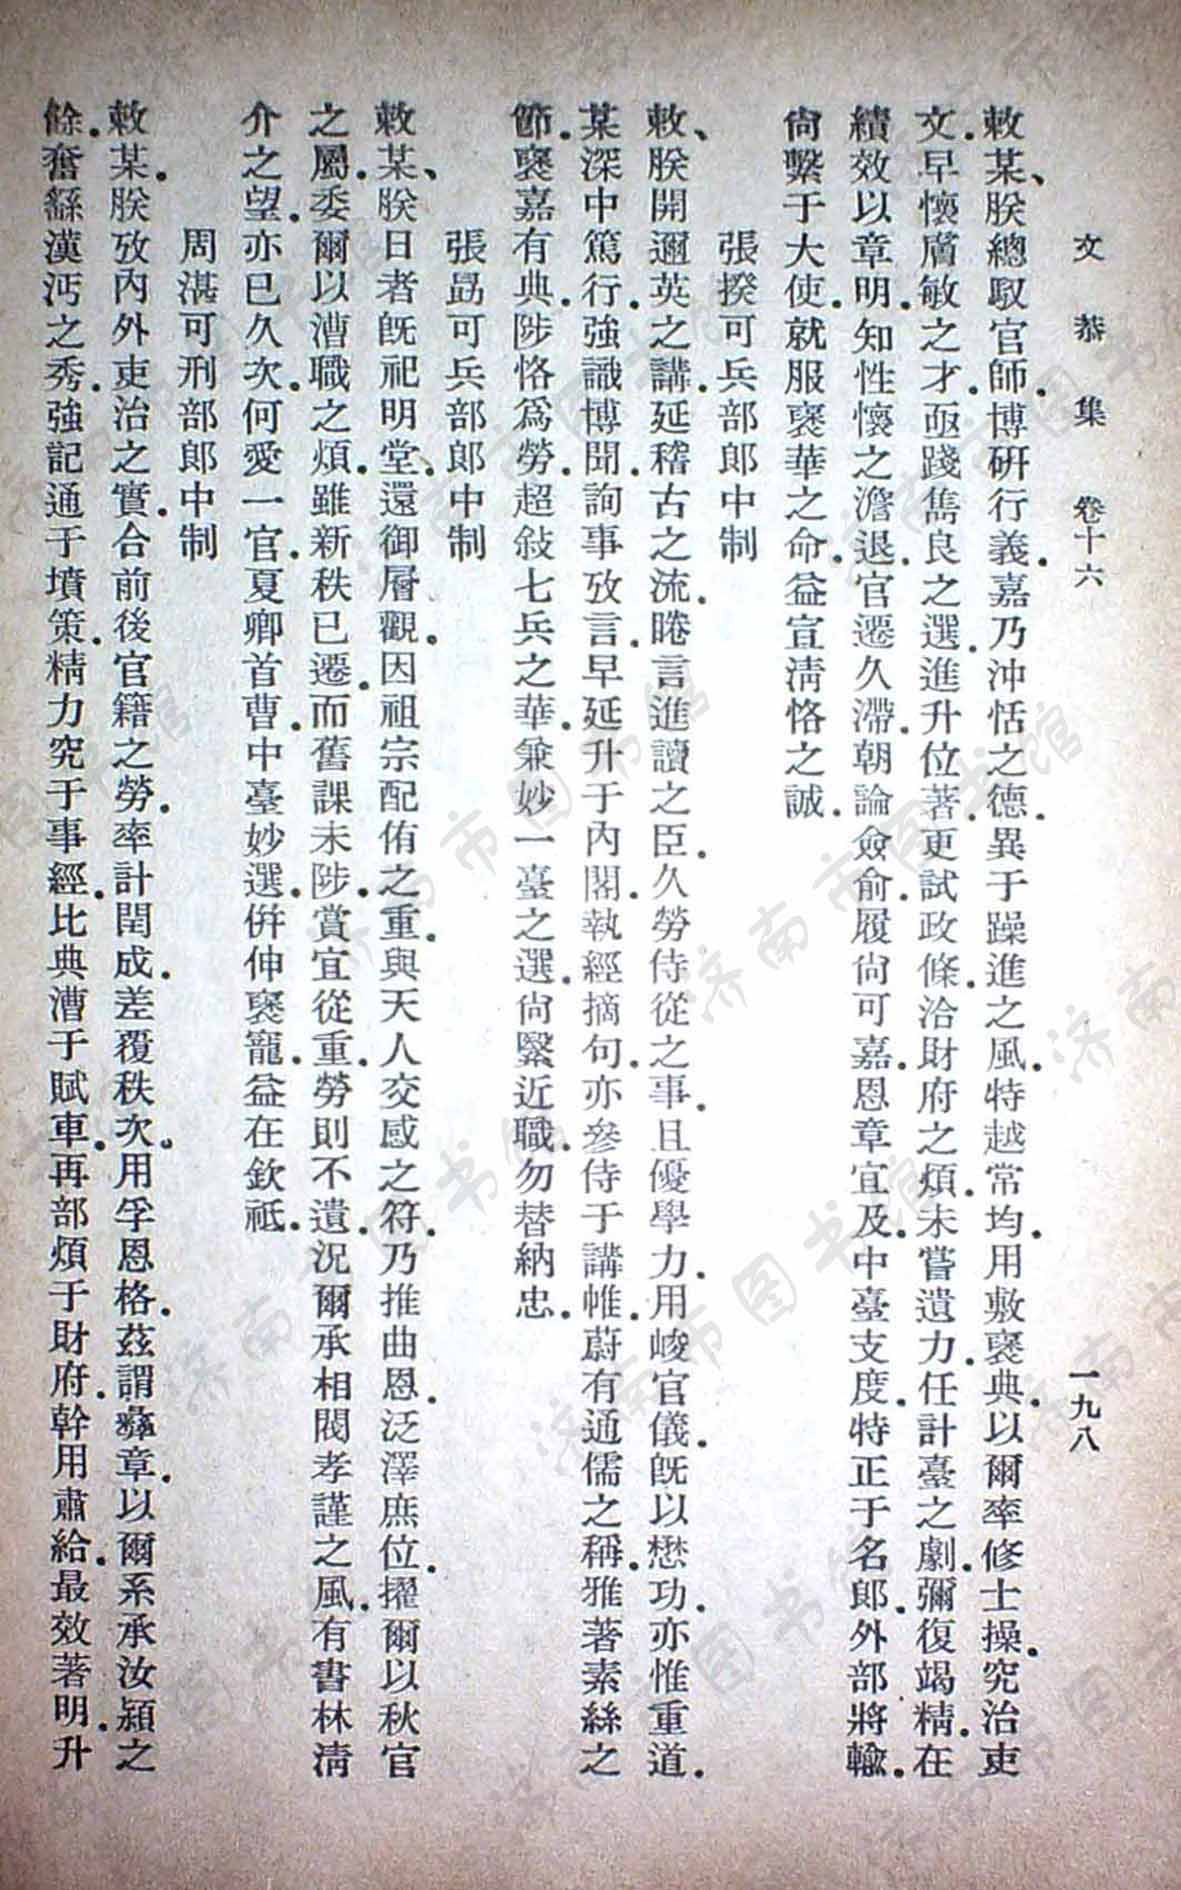 文恭集 卷十六 一九八
敕某、朕總馭官師.博研行義.嘉乃沖恬之德.異于躁進之風.特越常均.用敷褒典.以爾率修士操.究治吏
文.早懷膚敏之才.亟踐雋良之選.進升位著.更試政條.洽財府之煩.未嘗遺力.任計臺之劇.彌復竭精.在
績效以章明.知性懷之澹退.官遷久滯.朝論僉俞.履尙可嘉.恩章宜及.中臺支度.特正于名郎.外部將輸.
尙繫于大使.就服褒華之命.益宣淸恪之誠.
張揆可兵部郎中制
敕、朕開邇英之講.延稽古之流.睠言進讀之臣.久勞侍從之事.且優學力.用峻官儀.旣以懋功.亦惟重道.
某深中篤行.強識博聞.詢事攷言.早延升于內閣.執經摘句.亦參侍于講帷.蔚有通儒之稱.雅著素絲之
節.褒嘉有典.陟恪爲勞.超敍七兵之華.兼妙一臺之選.尙緊近職.勿替納忠.
張勗可兵部郎中制
敕某、朕日者旣祀明堂.還御層觀.因祖宗配侑之重.與天人交感之符.乃推曲恩.泛澤庶位.擢爾以秋官
之屬.委爾以漕職之煩.雖新秩已遷.而舊課未陟.賞宜從重.勞則不遺.況爾承相閥孝謹之風.有書林淸
介之望.亦已久次.何愛一官.夏卿首曹.中臺妙選.倂伸褒寵.益在欽祗.
周湛可刑部郎中制
敕某.朕攷內外吏治之實.合前後官籍之勞.率計閏成.差覆秩次.用孚恩格.茲謂彝章.以爾系承汝潁之
餘.奮繇漢沔之秀.強記通于墳策.精力究于事經.比典漕于賦車.再部煩于財府.幹用肅給.最效著明.升